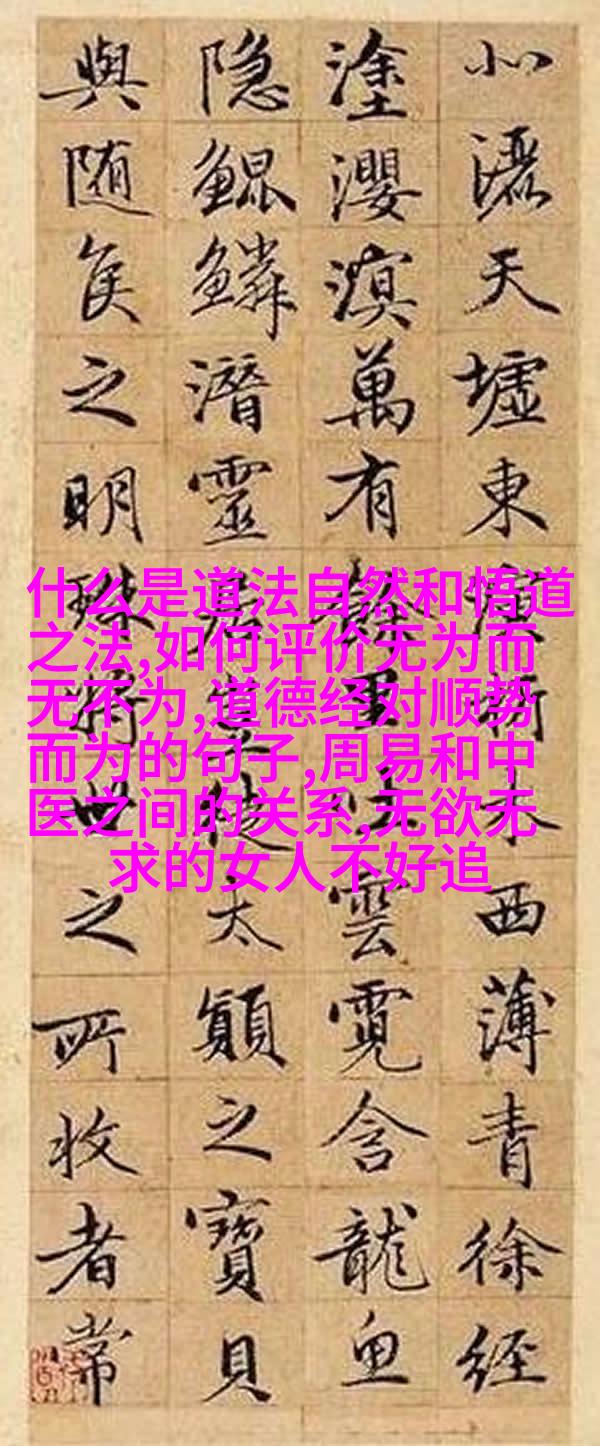 北灑天墟東演析木西薄青徐經
塗瀴溟萬有餘里吐雲霓含龍魚
隐鯤鱗潛靈居豈徒太顛之寶貝
與随侯之明珠將世之所收者常
什么是道法自然和悟道
之法,如何评价无为而
无不为,道德经对顺势
而为的句子,周易和中
医之间的关系,无欲无
求的女人不好追